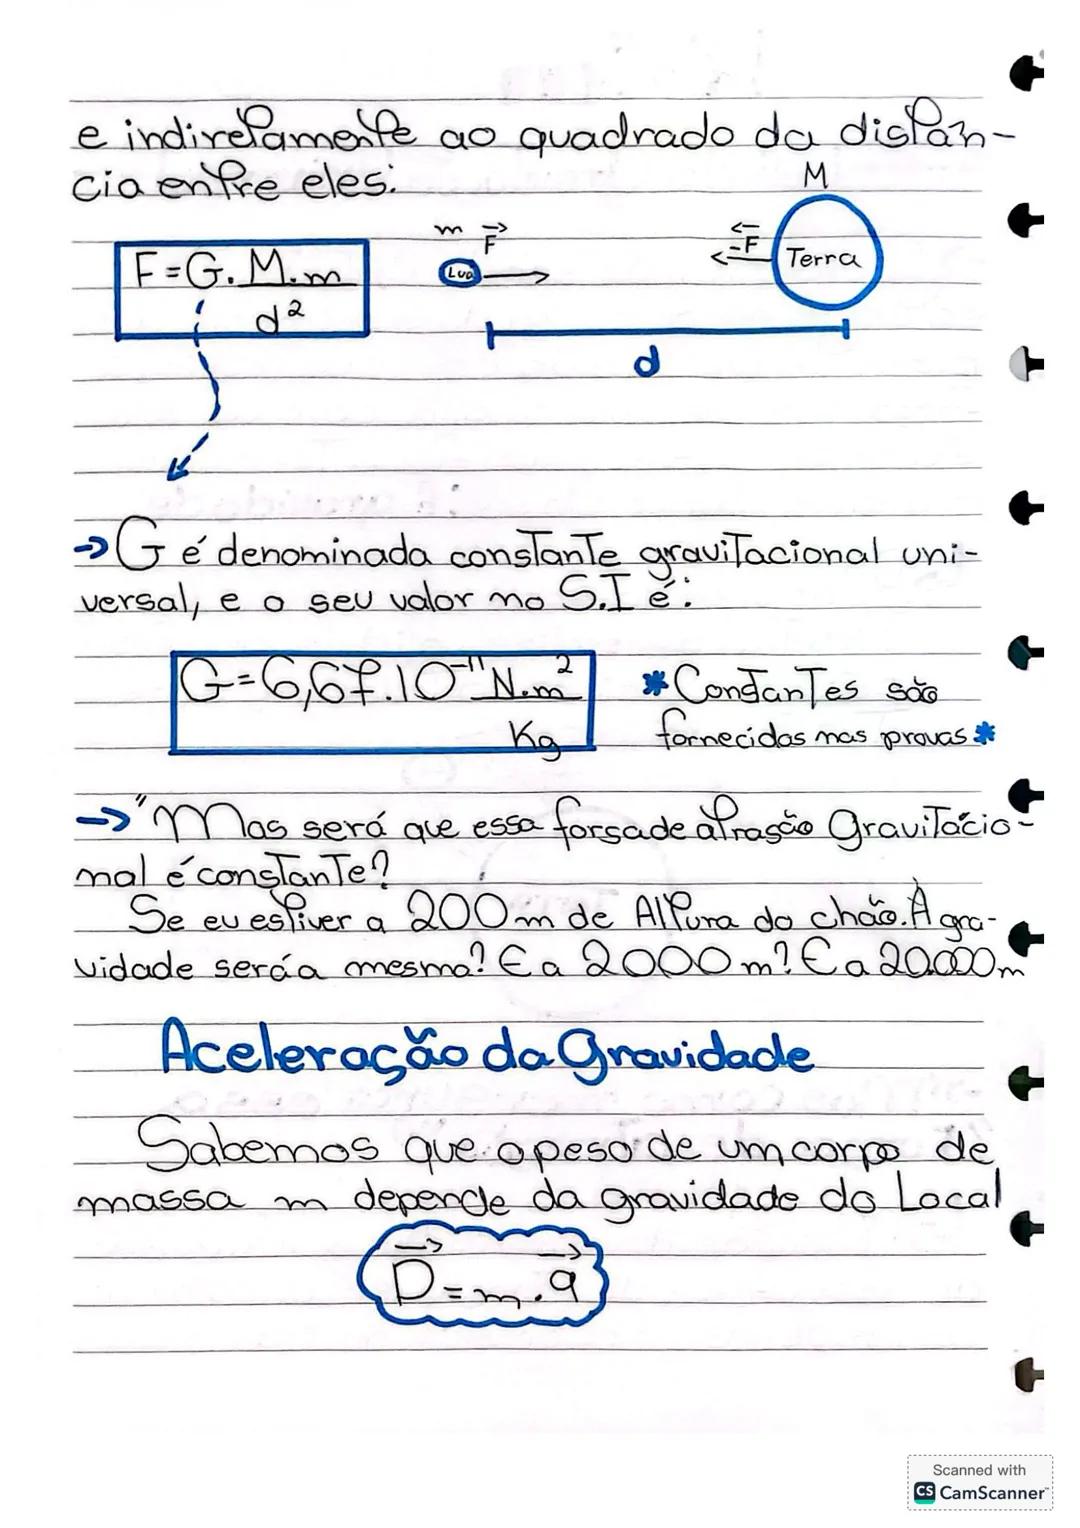 e indiretamente ao quadrado da distân-
cia entre eles:
M
m F
-F
F = G. M.m
d²
Lua
Terra
d
→ G é denominada constante gravitacional uni-
versal, e o seu valor no S.I é:
G = 6,67.10⁻¹¹ N.m²
Kg
* Constantes são
fornecidas nas provas *
→ "Mas será que essa forsa de atrasão Gravitacio-
nal é constante?
Se eu estiver a 200m de Altura do chão. A gra-
vidade será a mesma? E a 2000m? E a 20.000m
Aceleração da Gravidade
Sabemos que o peso de um corpo de
massa m depende da gravidade do Local
P = m . g
Scanned with
CS CamScanner